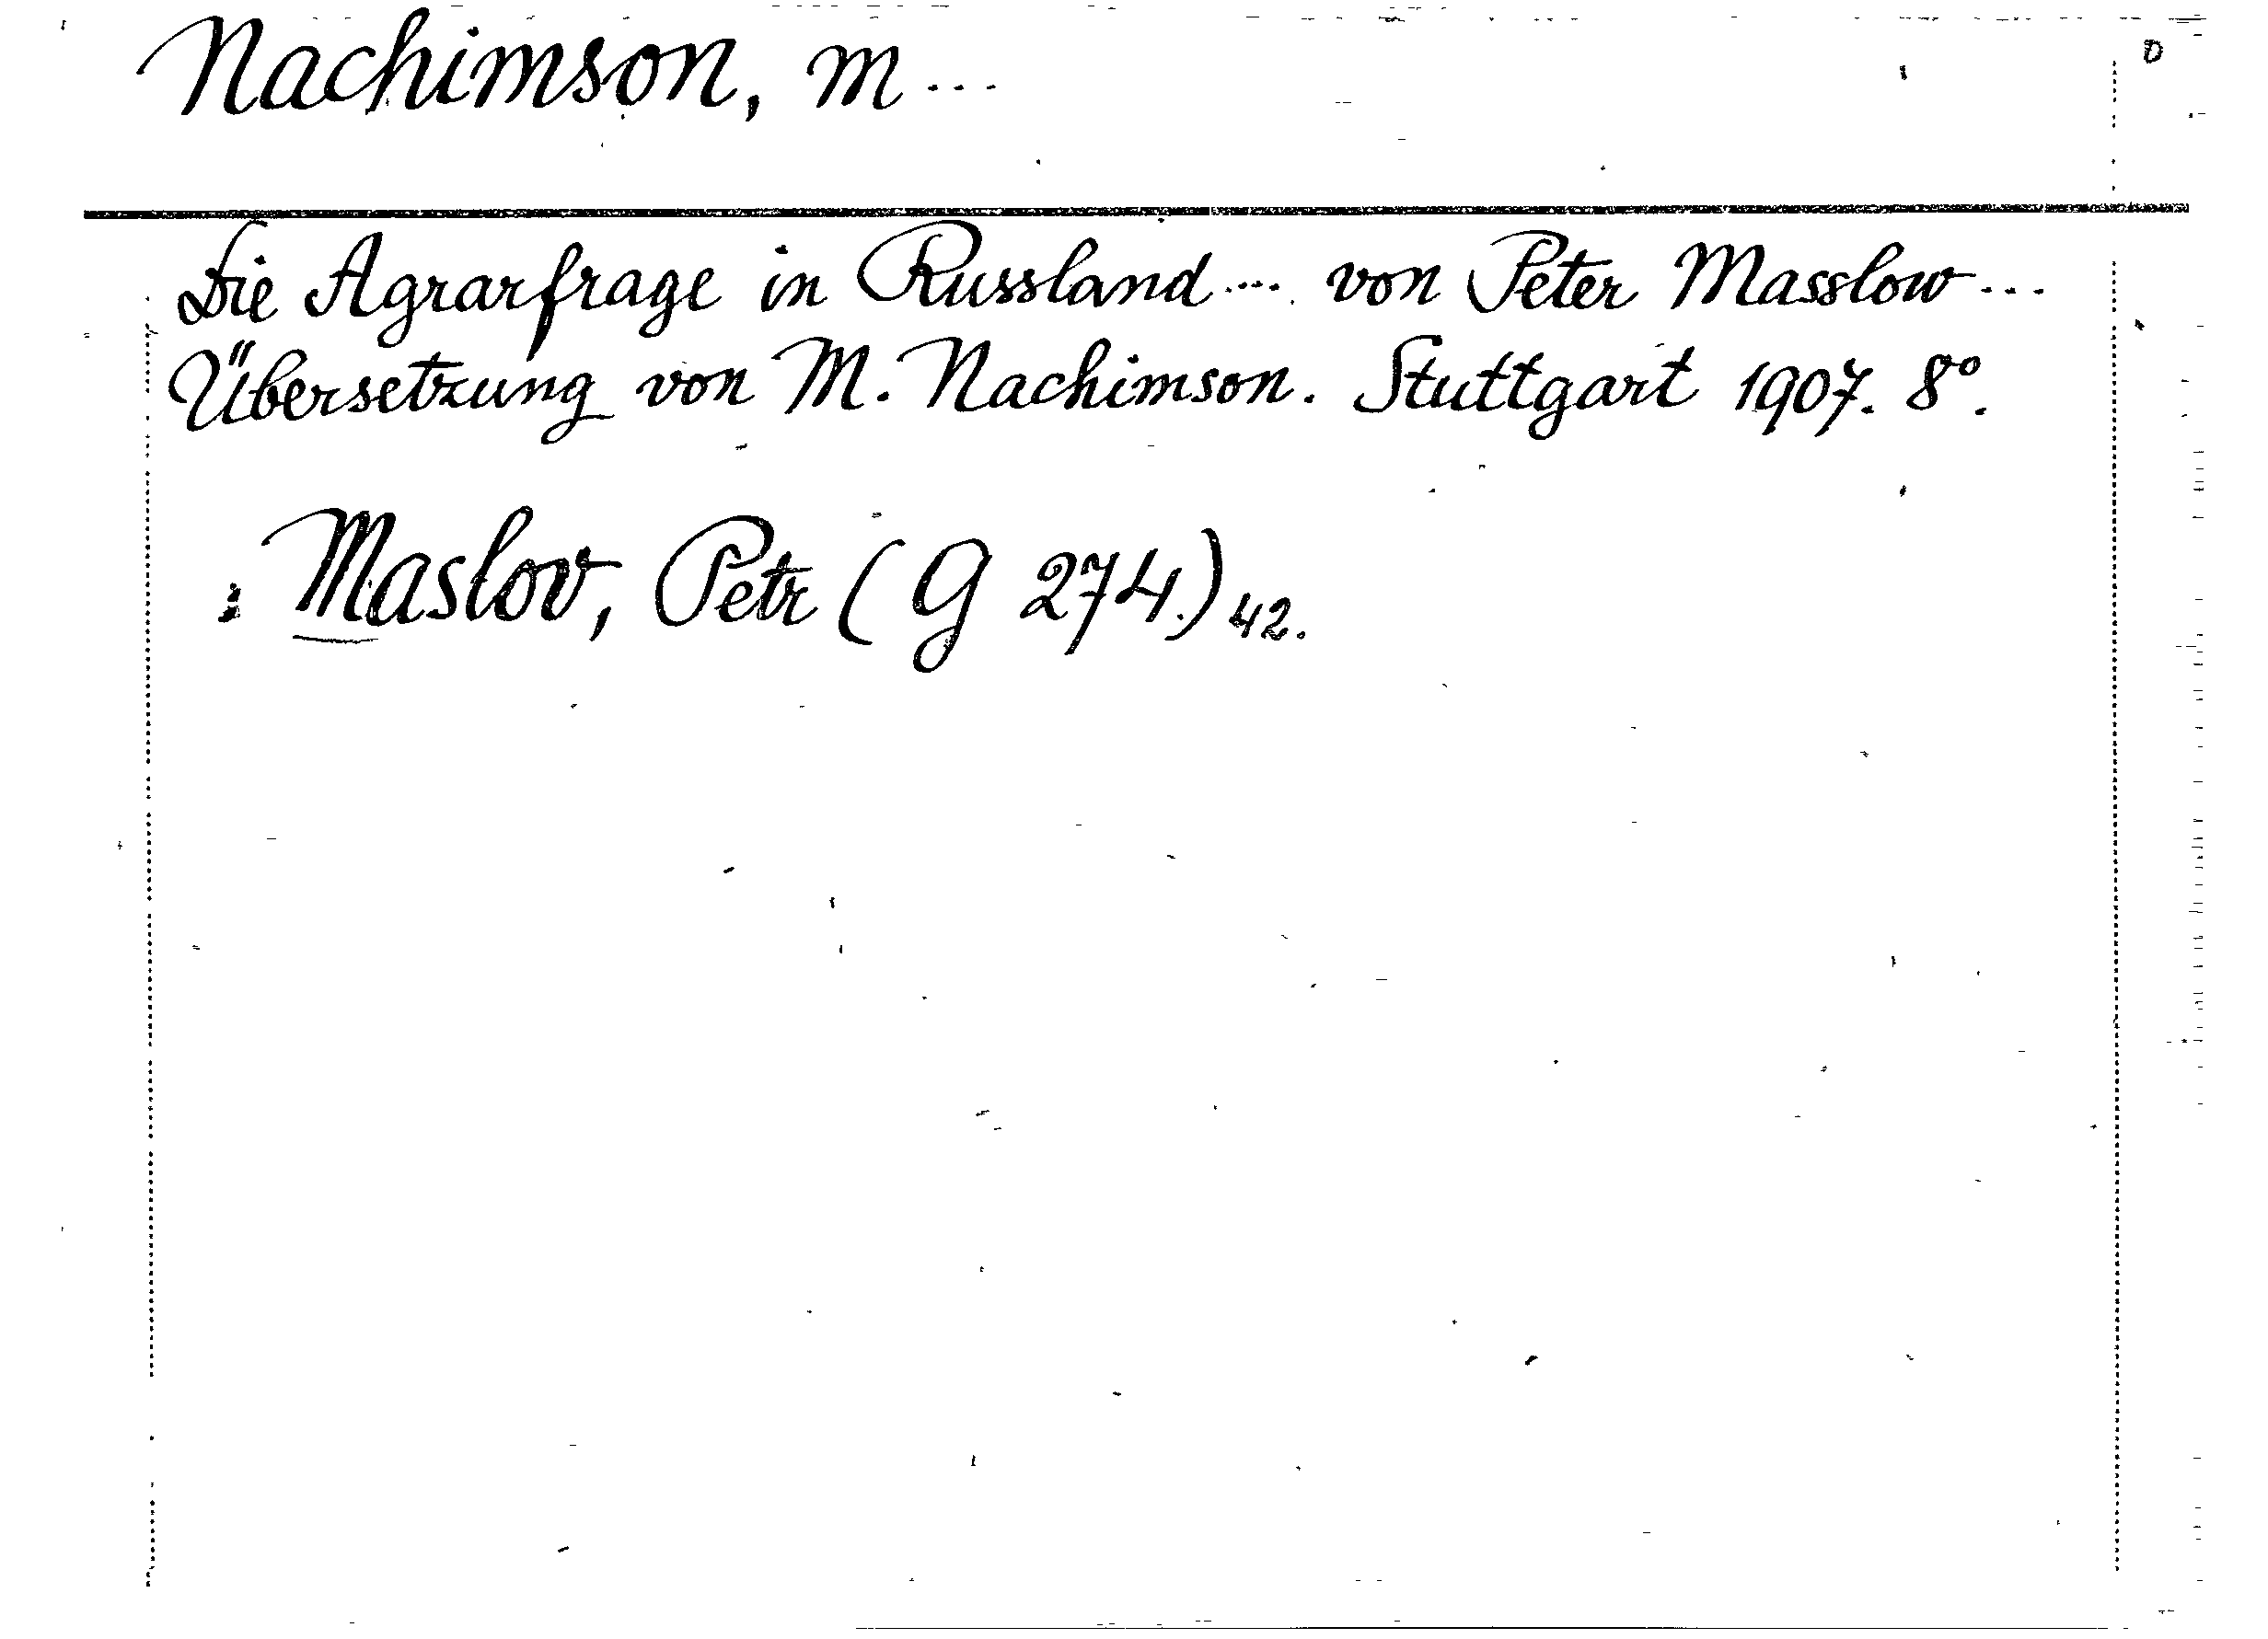 Nachimson, M...
D
Die Agrarfrage in Russland.... von Peter Masslow...
Übersetzung von M. Nachimson. Stuttgart 1907. 8°.
: Maslov, Petr (G 274.) 42.